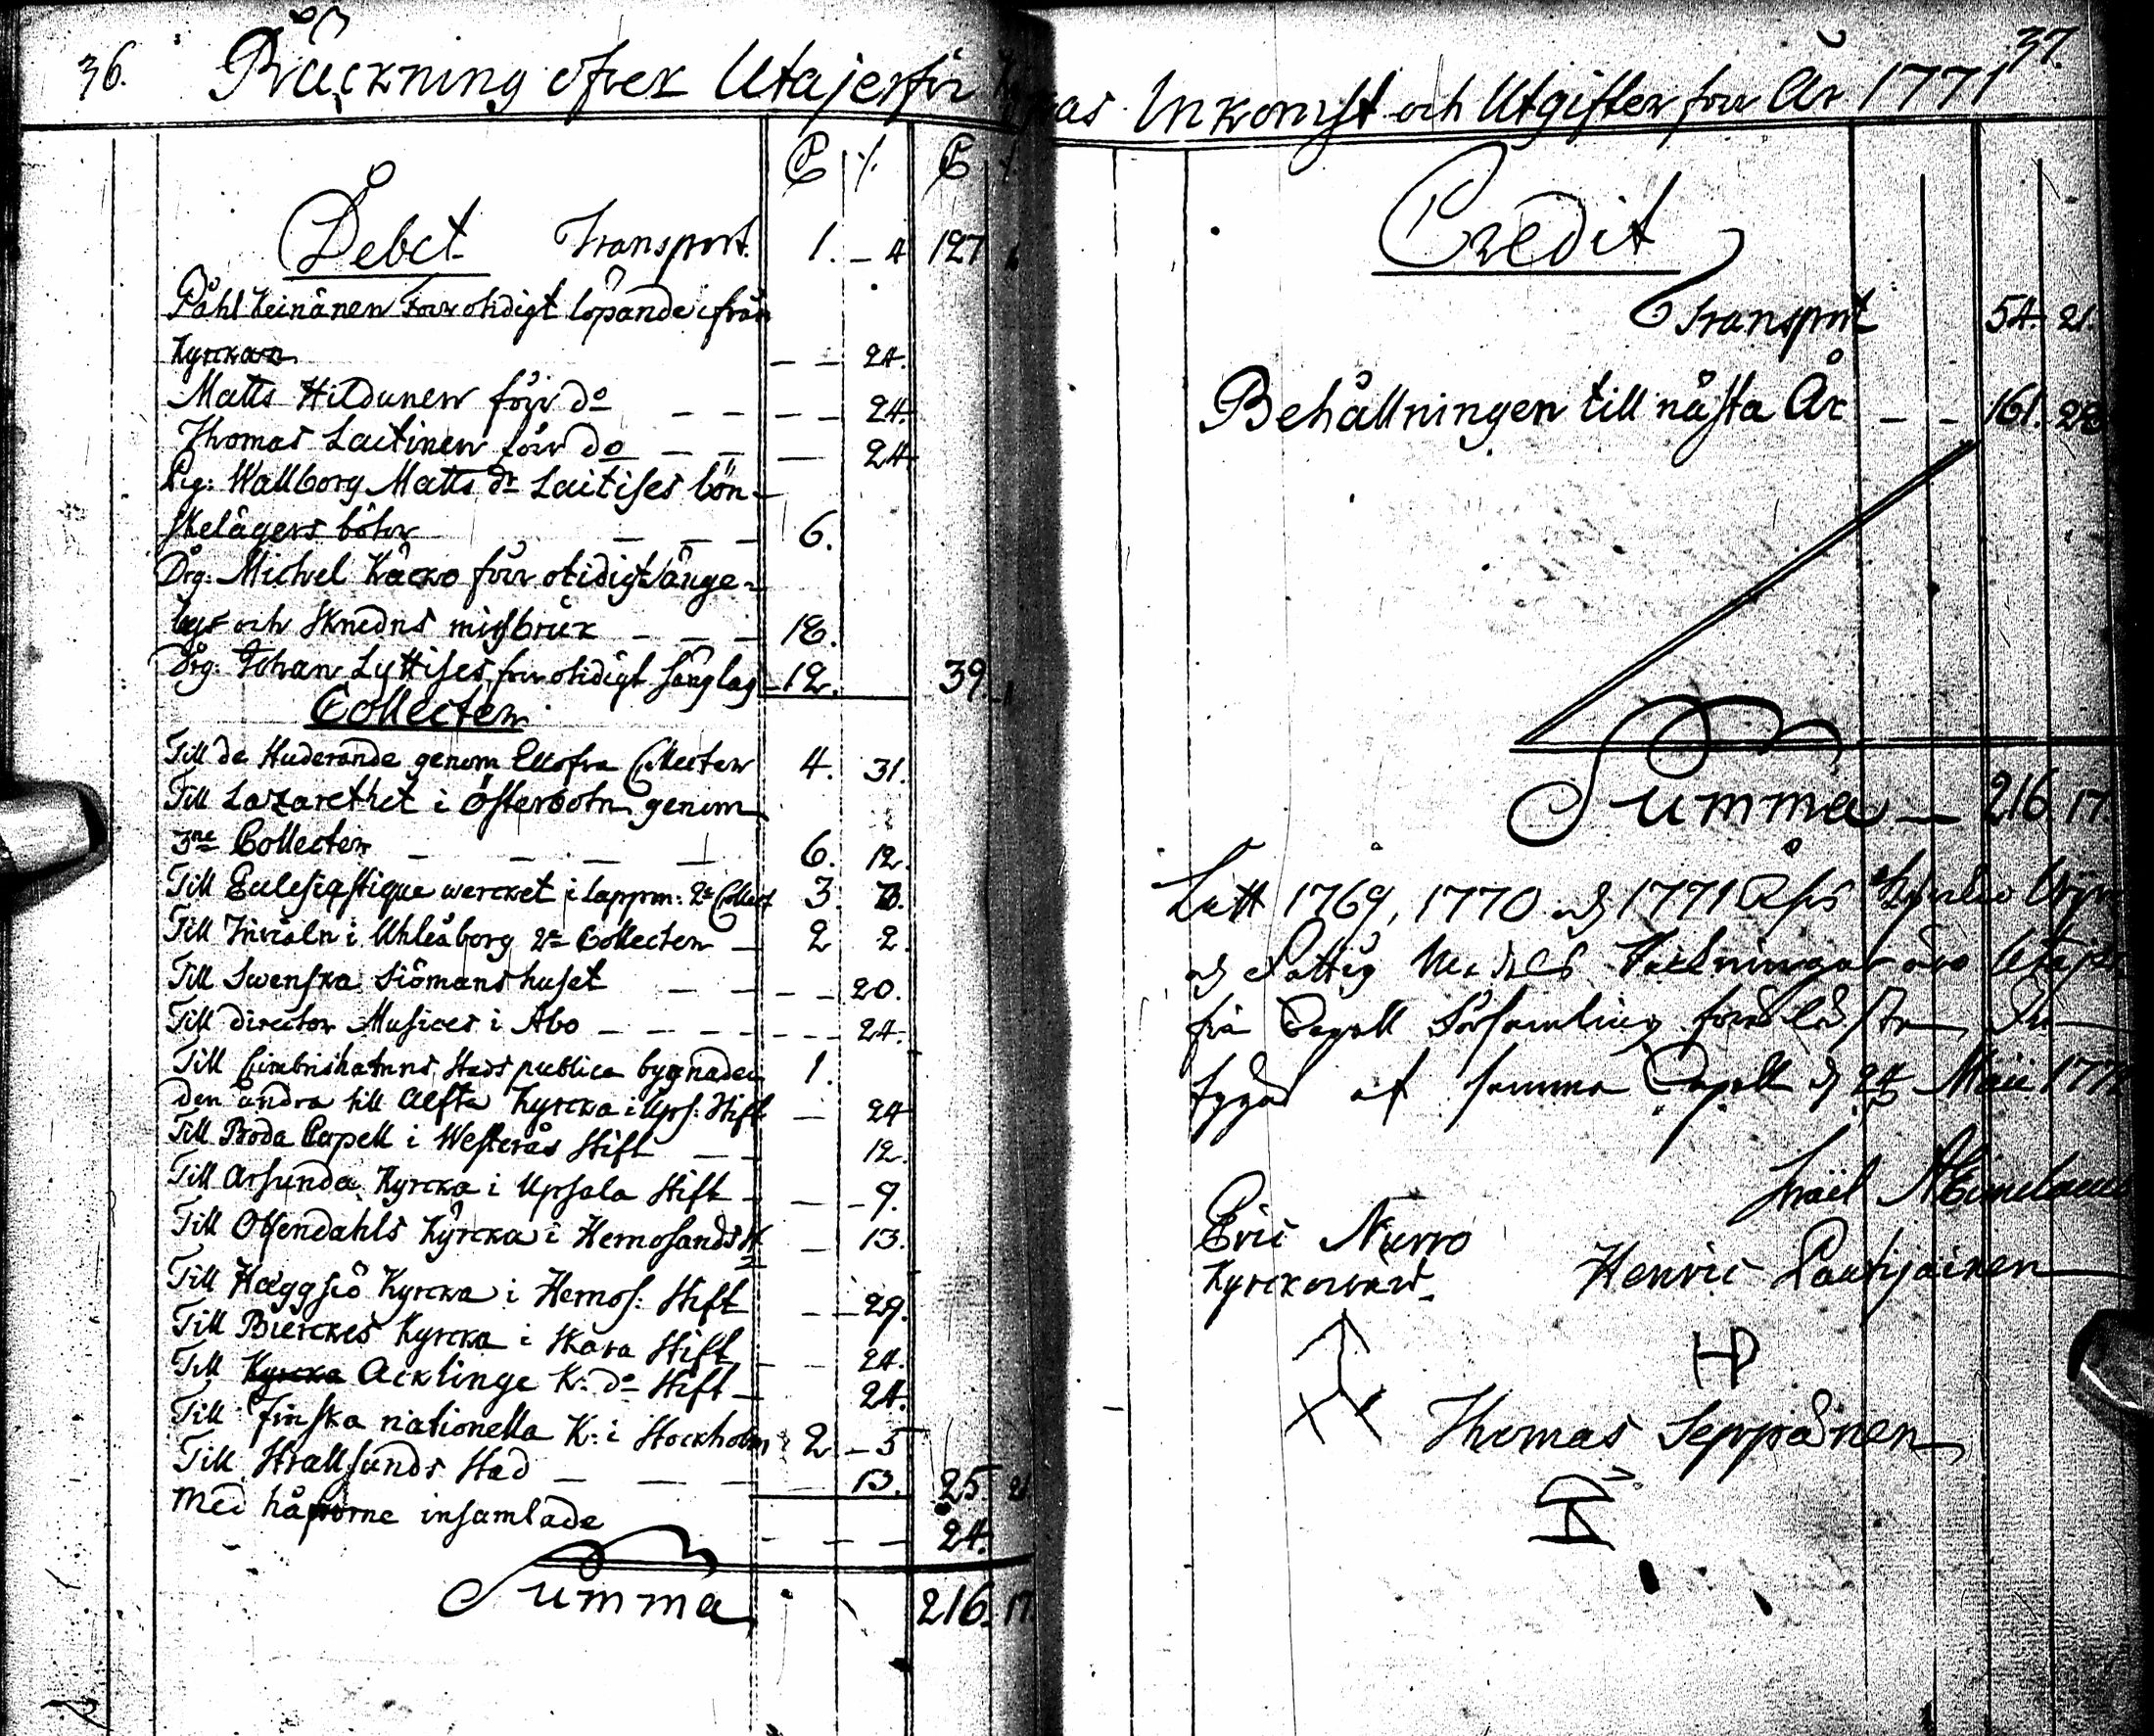 36.
Räckning öfver Utajerfvi
Debet Transport. 1. – 4 127
Påhl Keinänen för otidigt löpande ifrån
Kyrckan – – 24.
Matts Hildunen för do – – – – 24.
Thomas Laitinen för do – – – 24
Pig: Wallborg Matts dr Laitises lön-
skelägers böter – – – 6.
Drg: Michel Kácko för otidigt sänge-
lag och Sknedns missbruk – – – 18.
Drg: Johan Lyttises för otidigt sänglag 12. 39
Collecter
Till de Huderande genom Collecter 4. 31.
Till Lazarethet i Österbotn genom
3ne Collecter – – – – 6. 12.
Till Eclesiastique wercket i Lappm: 2e Collect 3.
Till i Uhleåborg 2e Collecter – 2 2.
Till Swenska Siömanshuset – – – – 20.
Till director Musices i Åbo – – – – – – 24.
Till Cimbrishamns Stads publica bygnader 1.
den andra till Alfta Kyrcka i Ups: Stift – 24
Till Boda Capell i Westerås Stift – – 12.
Till Arsunda Kyrcka i Upsala Stift – – – 9.
Till Ottendahls Kyrcka i Hernosands St – 13.
Till Häggsiö Kyrcka i Hernos: Stift – – 29.
Till Bierckes Kyrcka i Skara Stift – – 24.
Till Kyrcka Acklinge K: do Stift – 24.
Till finska nationella K: i Stockholm 2 – 5
Till Strallsunds Stad – – – – 13. 25. 21
Med håfvorne insamlade – – – 24.
Summa 216. 17.
37.
kas Inkomst och Utgifter för År 1771
Credit
Transport 54. 21.
Behållningen till nästa År – – 161. 28
Summa – 216. 17.
1769, 1770 och 1771 Års
och Fattig Medels Räkningar
Capell Församling
af samma Capell d 24 Maii 177
Eric Nurro
Kyrckovärd.
Henric Pautjainen
HP
Thomas Seppänen